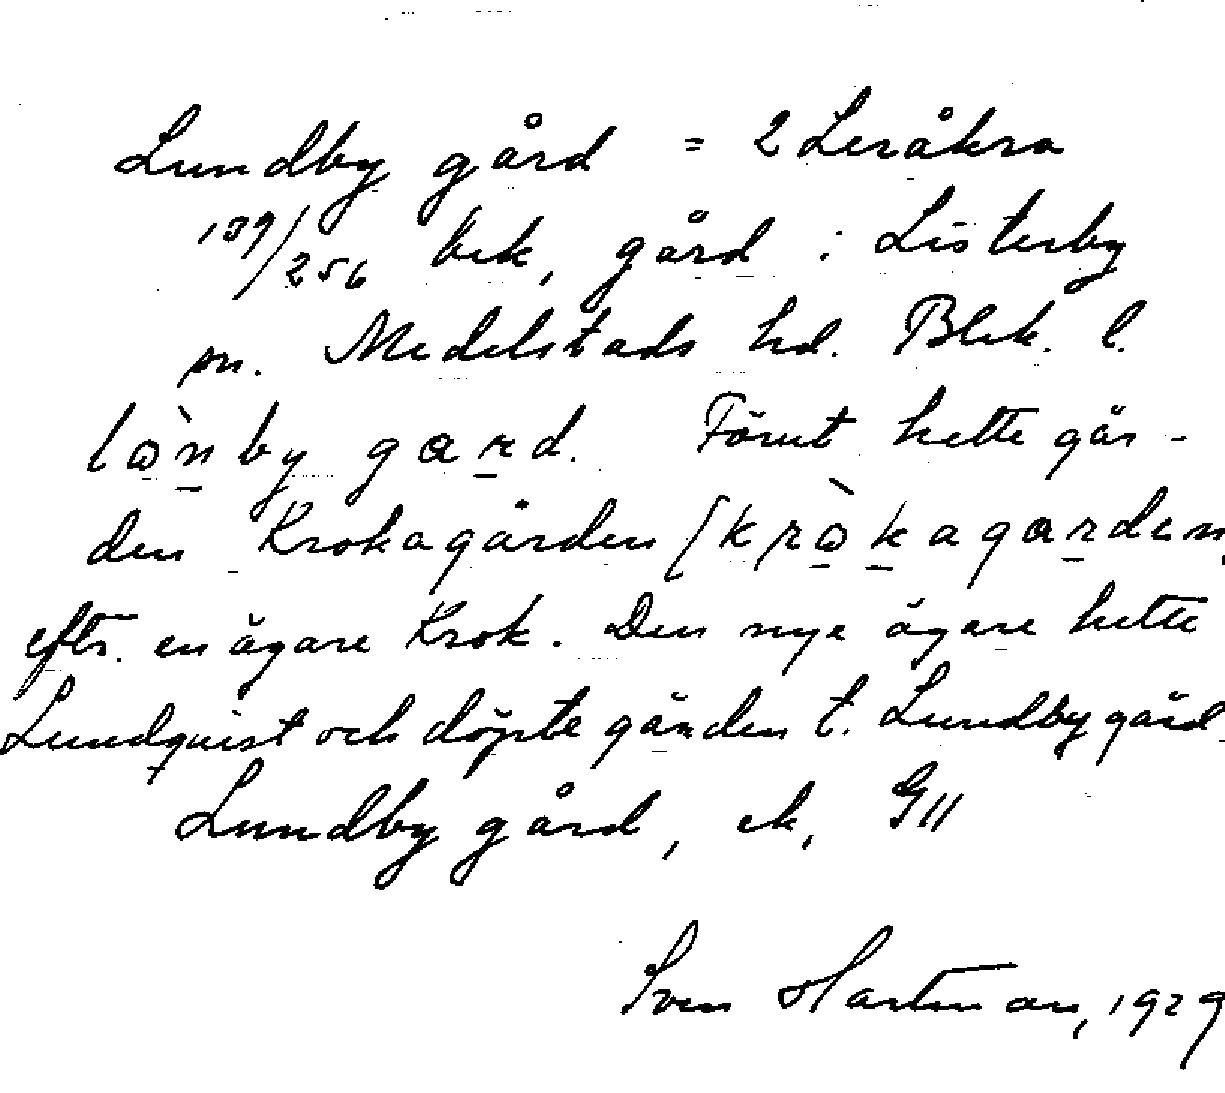 Lundby gård = 2 Leråkra
109/256 bek, gård i Listerby
sn. Medelstads hd. Blek. l.
lò̱ṉby gaṟd. Förut hette går-
den Krokagården [krò̱ḵagaṟden,
eftr. en ägare Krok. Den nye ägare hette
Lundquist och döpte gården t. Lundby gård.
Lundby gård, ek, G11
Sven Hartman, 1929